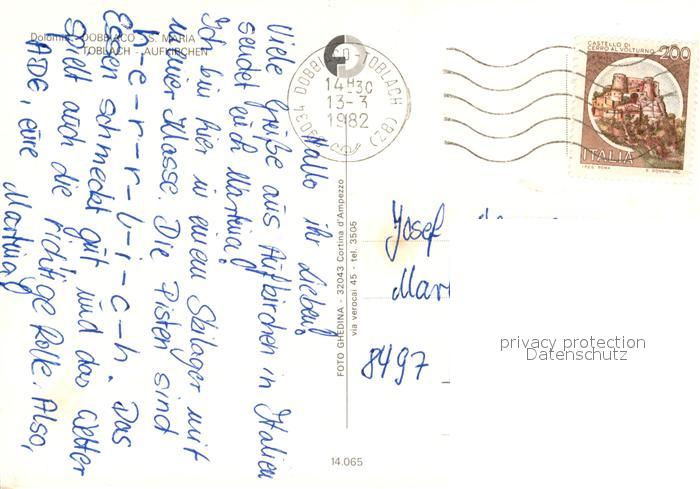 Dolomiti - DOBBIACO - S. MARIA
TOBLACH - AUFKIRCHEN
Hallo ihr Lieben!
Viele Grüße aus Aufkirchen in Italien
sendet euch Martina!
Ich bin hier in einem Skilager mit
meiner Klasse. Die Pisten sind
h-e-r-r-l-i-c-h. Das
Essen schmeckt gut und das Wetter
spielt auch die richtige Rolle. Also,
ADE, eure
Martina
FOTO GHEDINA - 32043 Cortina d'Ampezzo
via verocai 45 - tel. 3505
14.065
39034 DOBBIACO-TOBLACH (BZ)
14H30
13-3
1982
CASTELLO DI
CERRO AL VOLTURNO
200
ITALIA
I.P.Z.S. ROMA
Josef
Mar
8497
privacy protection
Datenschutz